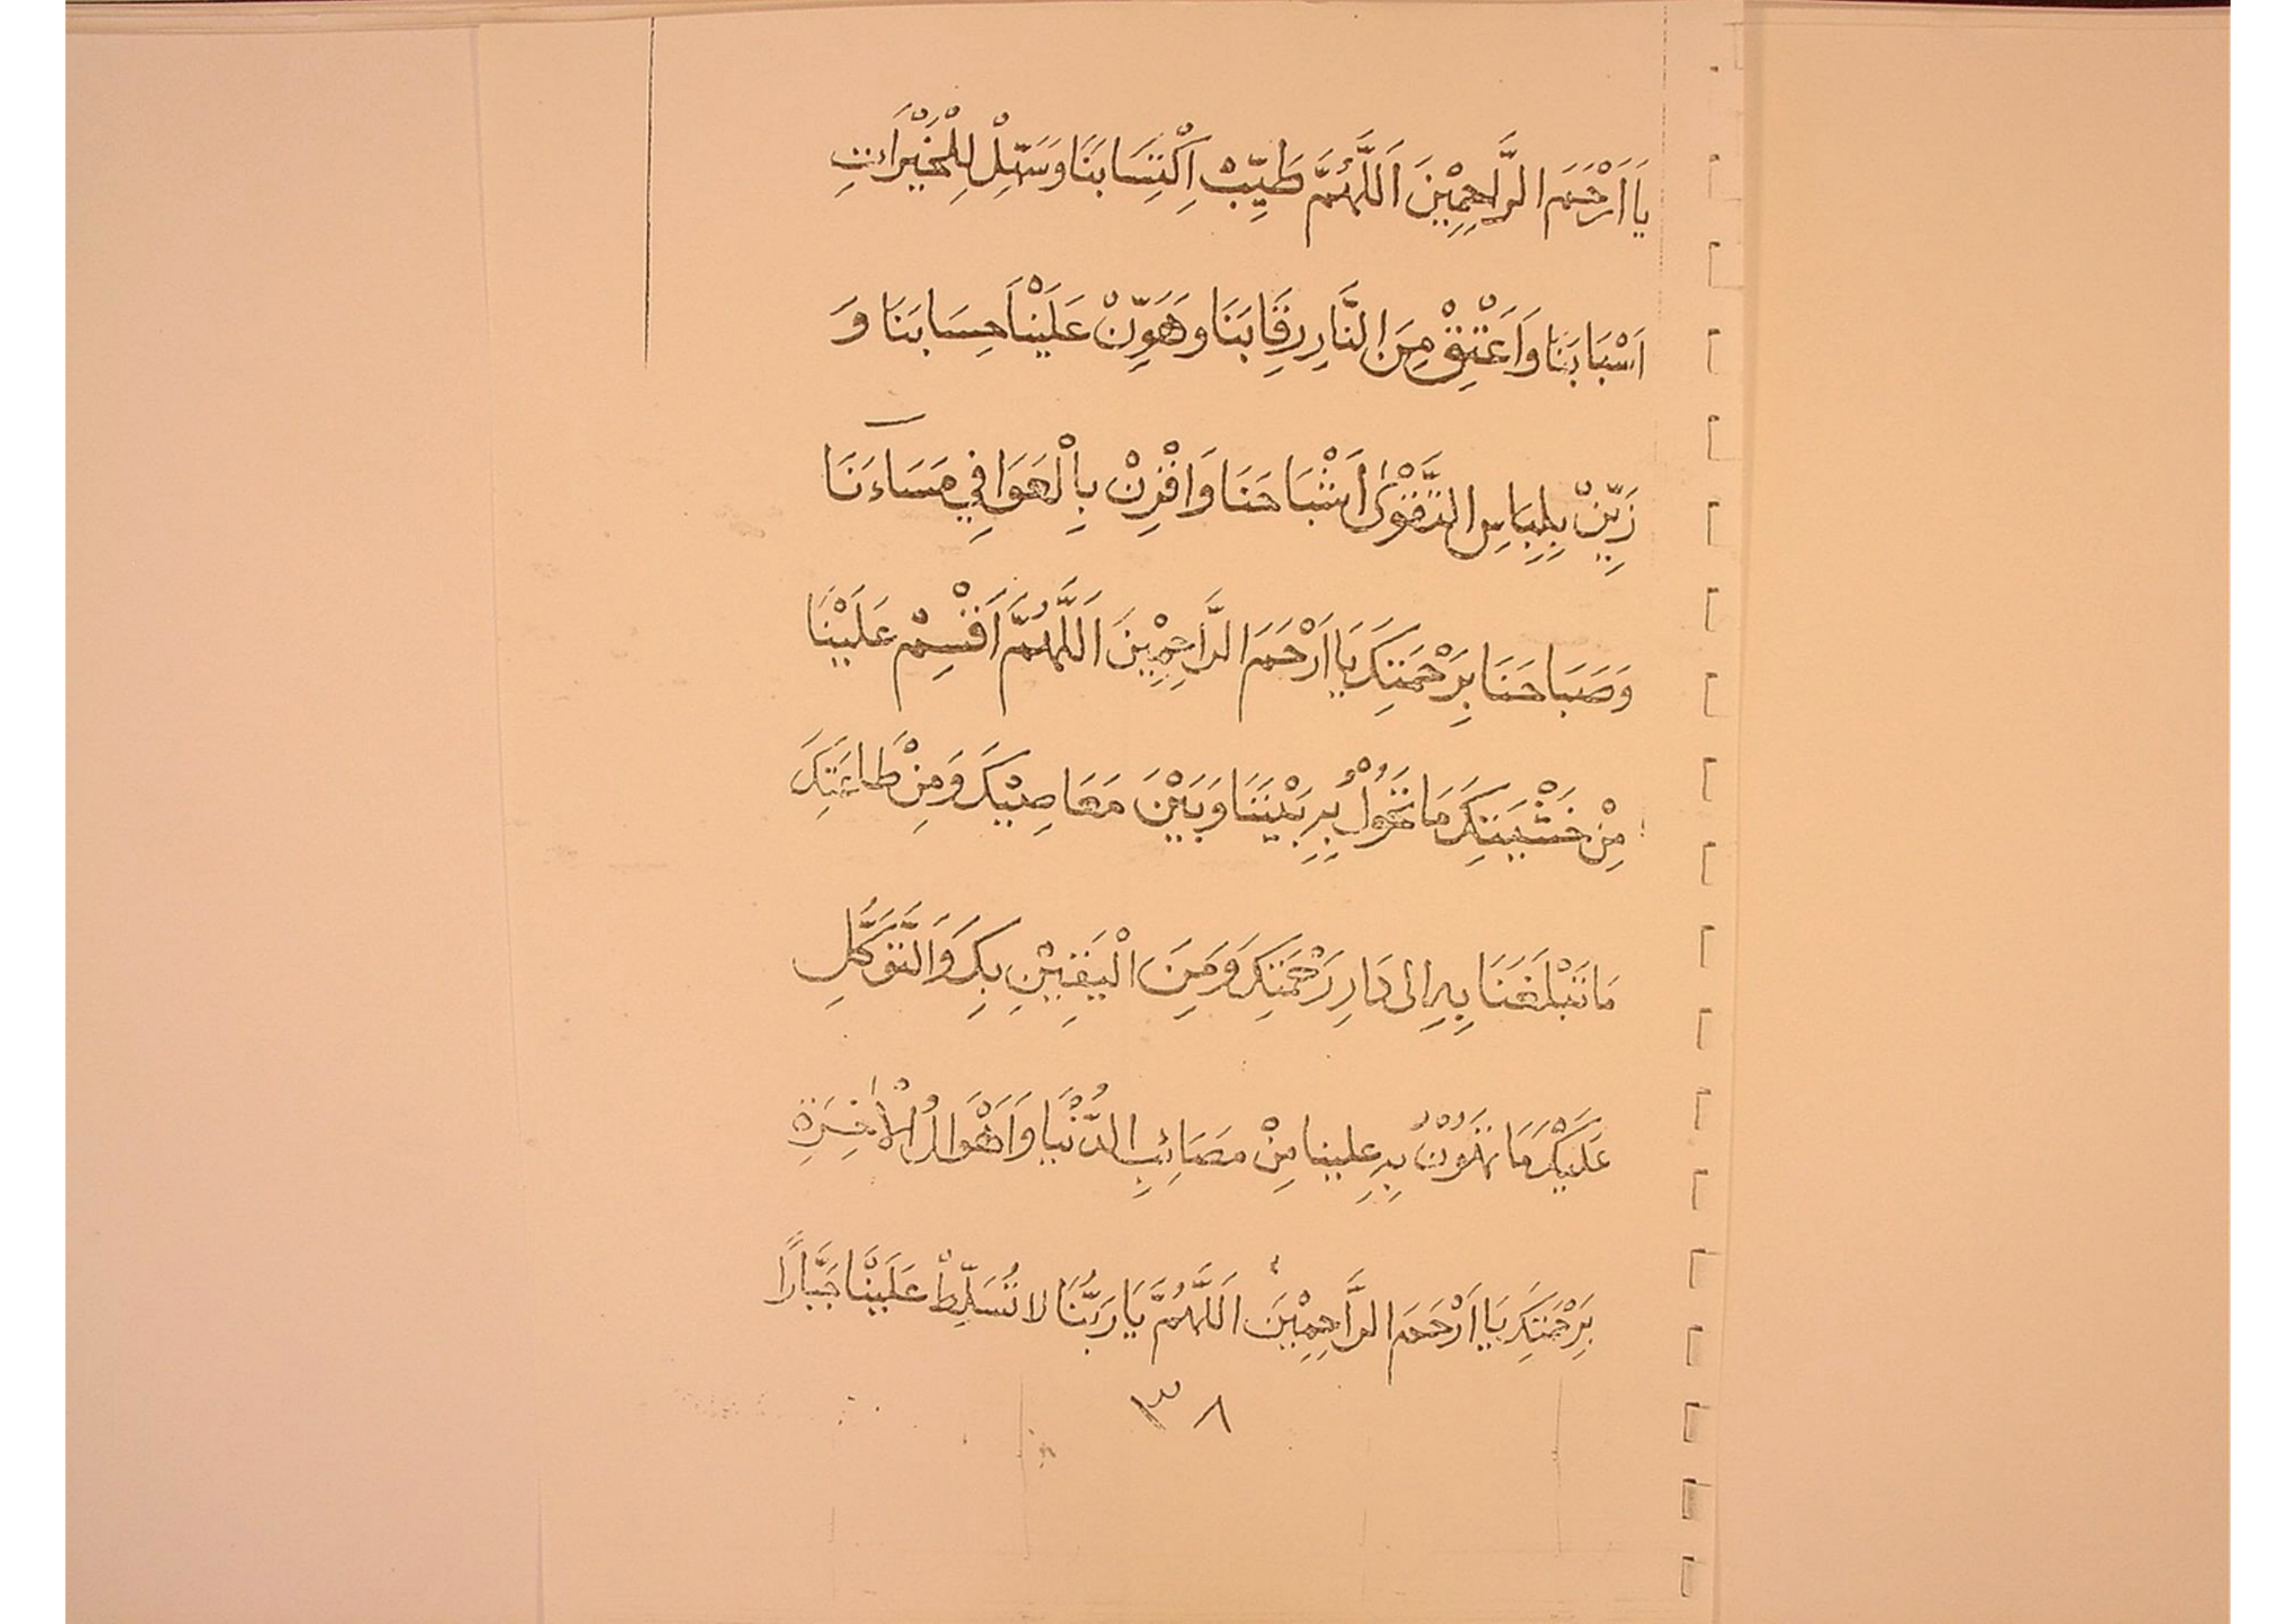 يَا اَرْحَمَ الرَّاحِمِيْنَ اَللَّهُمَّ طَيِّبْ اِكْتِسَابَنَا وَسَبِّلْ لِلْخَيْرَاتِ
اَسْبَابَنَا وَاَعْتِقْ مِنَ النَّارِ رِقَابَنَا وَهَوِّنْ عَلَيْنَا حِسَابَنَا وَ
زَيِّنْ بِلِبَاسِ التَّقْوٰى اَشْبَاحَنَا وَاقْرِنْ بِالْعَوَافِي مَسَاءَنَا
وَصَبَاحَنَا بِرَحْمَتِكَ يَا اَرْحَمَ الرَّاحِمِيْنَ اَللَّهُمَّ اَقْسِمْ عَلَيْنَا
مِنْ خَشْيَتِكَ مَا تَحُوْلُ بِهِ بَيْنَنَا وَبَيْنَ مَعَاصِيْكَ وَمِنْ طَاعَتِكَ
مَا تَبْلَغَنَا بِهِ الى دَارِ رَحْمَتِكَ وَمِنَ الْيَقِيْنِ بِكَ وَالتَّوَكُّلِ
عَلَيْكَ مَا تَهَوُنْ بِهِ علينا مِنْ مَصَائِبِ الدُّنْيَا وَاَهْوَالُ الْاٰخِرَةِ
بِرَحْمَتِكَ يَا اَرْحَمَ الرَّاحِمِيْنَ اَللَّهُمَّ يَا رَبَّنَا لا تُسَلِّطْ عَلَيْنَا جَبَّارًا
٣٨